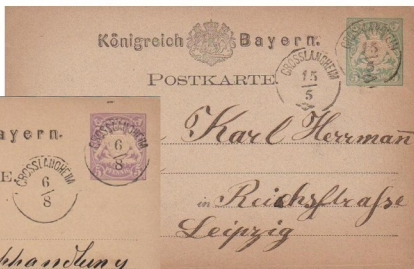 Königreich Bayern.
POSTKARTE
GROSSLANGHEIM
15
5
GROSSLANGHEIM
15
Karl Herrmann
in Reichsstraße
Leipzig
ayern.
E.
GROSSLANGHEIM
6
8
GROSSLANGHEIM
6
8
hhandlung